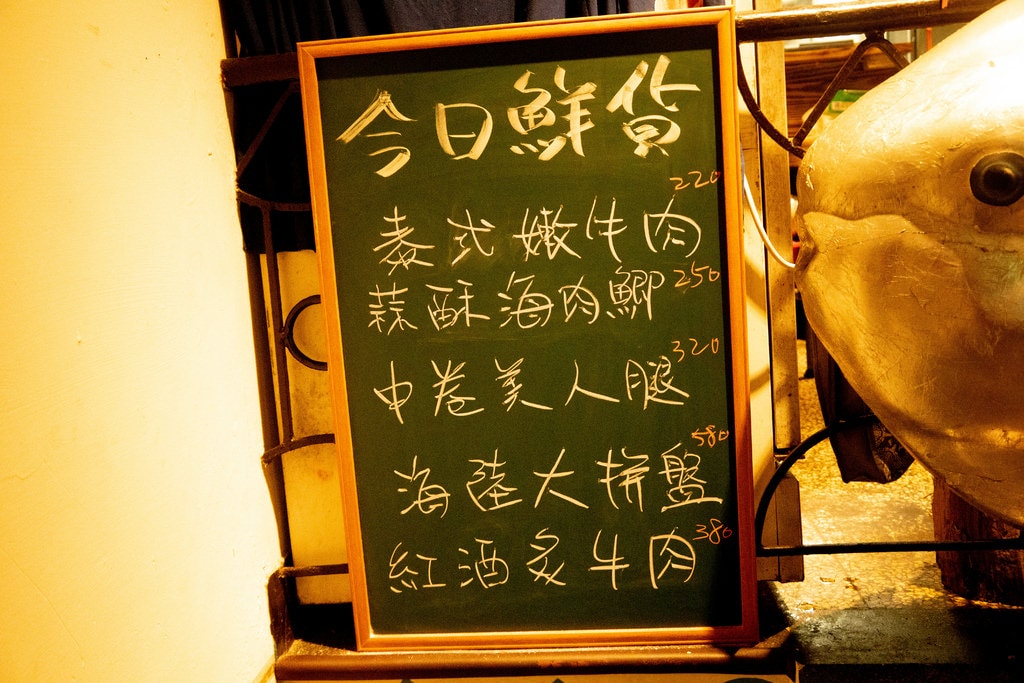 今日鮮貨
泰式嫩牛肉 220
蒜酥海肉鯽 250
中卷美人腿 320
海陸大拼盤 580
紅酒炙牛肉 380